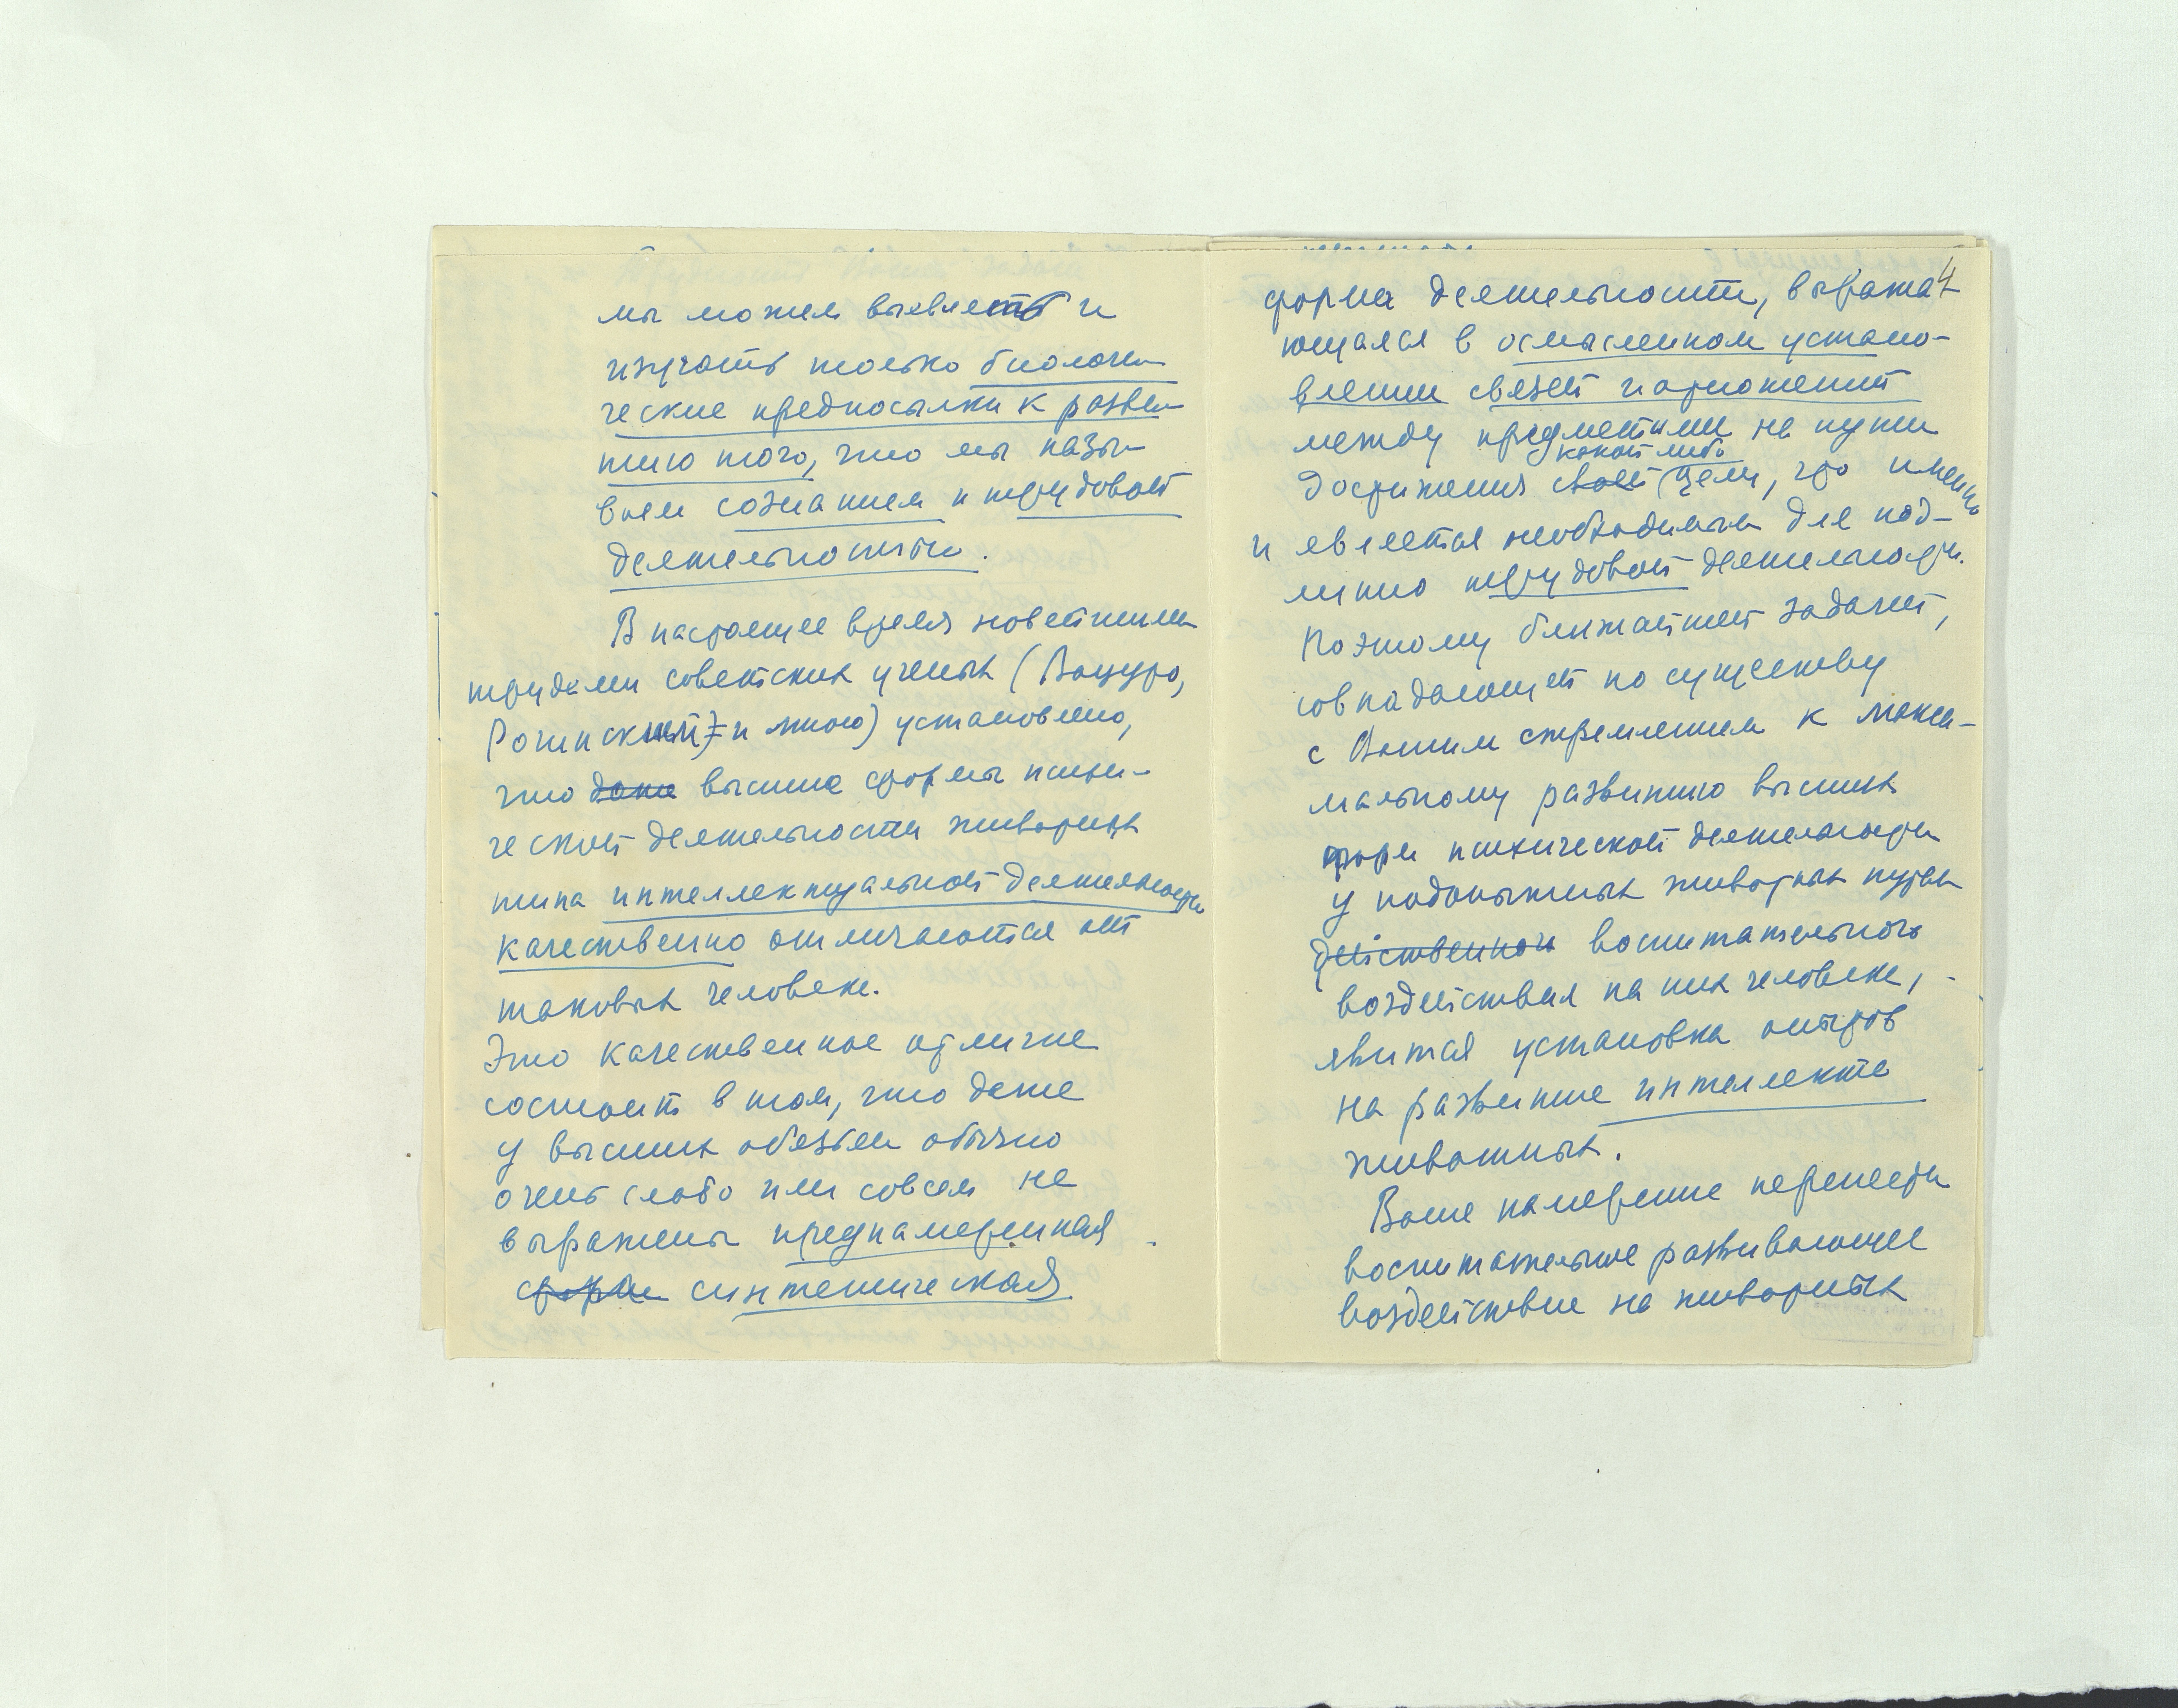 мы можем выявлять и
изучать только биологи-
ческие предпосылки к разви-
тию того, что мы назы-
ваем сознанием и трудовой
деятельностью.
В настоящее время новейшими
трудами советских ученых (Вацуро,
Рогинский) и мною) установлено,
что даже высшие формы психи-
ческой деятельности животных
типа интеллектуальной деятельности
качественно отличаются от
таковых человека.
Это качественное отличие
состоит в том, что даже
у высших обезьян обычно
очень слабо или совсем не
выражены преднамеренная
форма синтетическая
4
форма деятельности, выража-
ющаяся в осмысленном устано-
влении связей и отношений
между предметами на пути
какой либо
достижения своей цели, что именно
и является необходимым для под-
линно трудовой деятельности.
Поэтому ближайшей задачей,
совпадающей по существу
с Вашим стремлением к макси-
мальному развитию высших
форм психической деятельности
у подопытных животных путем
действенного воспитательного
воздействия на них человека,
явится установка опытов
на развитие интеллекта
животных.
Ваше намерение перенести
воспитательное развивающее
воздействие на животных